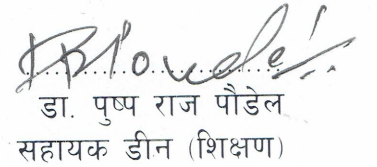 डा. पुष्प राज पौडेल
सहायक डीन (शिक्षण)